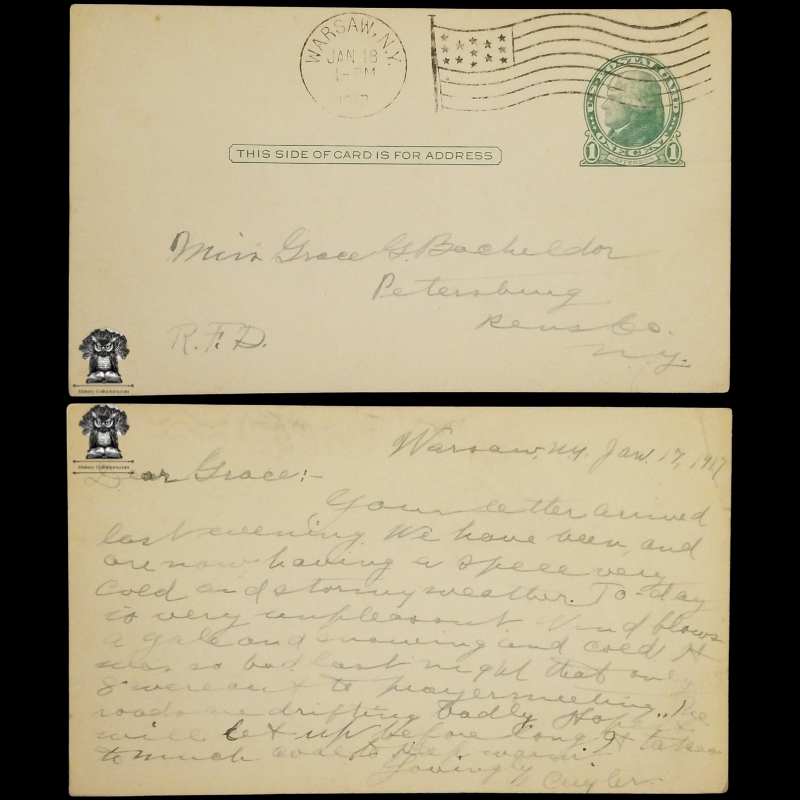 WARSAW, N.Y.
JAN 18
1-PM
1917
U.S. POSTAL CARD
ONE CENT
1 JEFFERSON 1
THIS SIDE OF CARD IS FOR ADDRESS
Miss Grace G. Bacheldor
Petersburg
Rens Co.
N.Y.
R.F.D.
History-Collectors.com
History-Collectors.com
Warsaw, N.Y. Jan. 17, 1917
Dear Grace:-
Your letter arrived
last evening. We have been, and
are now having a spell very
cold and stormy weather. To-day
is very unpleasant. Wind blows
a gale and snowing and cold. It
was so bad last night that only
8 were out to prayermeeting. The
roads are drifting badly. Hope it
will let up before long. It takes
to much coal to keep warm.
Lovingly
Cuyler.